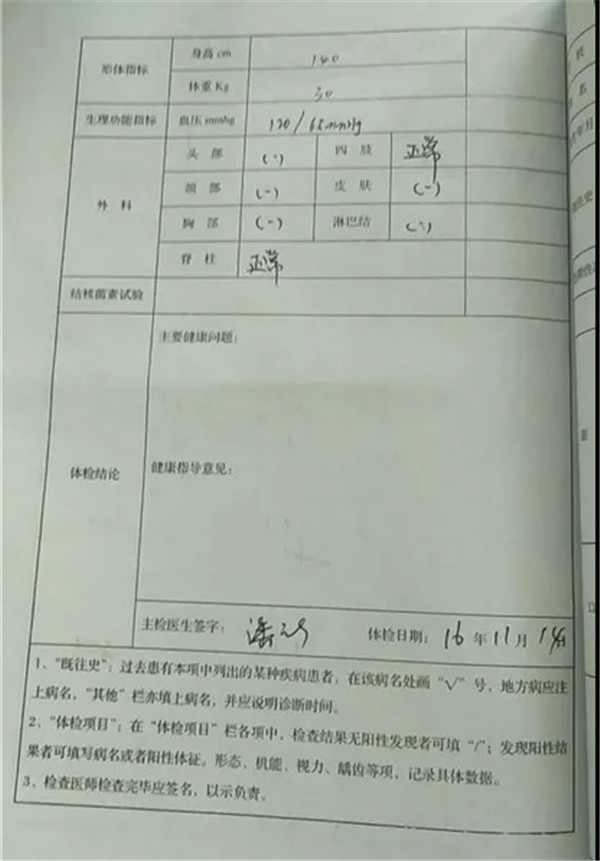 形体指标 身高 cm 140
体重 Kg 30
生理功能指标 血压 mmhg 120/65mmHg
外 科 头 部 (-) 四 肢 正常
颈 部 (-) 皮 肤 (-)
胸 部 (-) 淋巴结 (-)
脊 柱 正常
结核菌素试验
体检结论
主要健康问题：
健康指导意见：
主检医生签字： 体检日期： 16 年 11 月 14日
1、“既往史”：过去患有本项中列出的某种疾病患者，在该病名处画“√”号，地方病应注
上病名，“其他”栏亦填上病名，并应说明诊断时间。
2、“体检项目”：在“体检项目”栏各项中，检查结果无阳性发现者可填“/”；发现阳性结
果者可填写病名或者阳性体征。形态、机能、视力、龋齿等项，记录具体数据。
3、检查医师检查完毕应签名，以示负责。